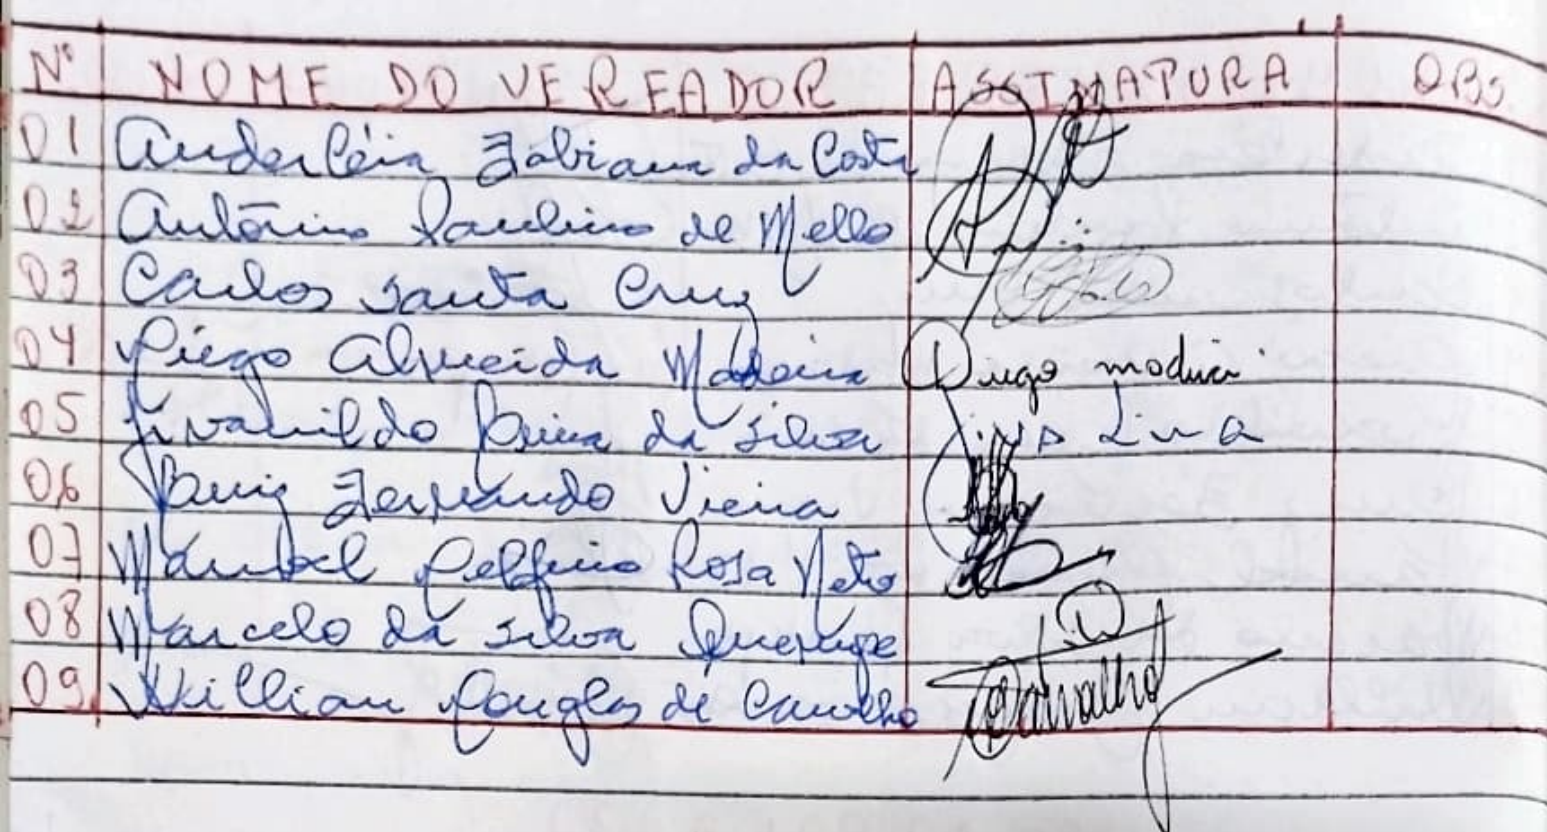 Nº NOME DO VEREADOR ASSINATURA OBS
01 Anderléia Fabiana da Costa
02 Antônio Paulino de Mello
03 Carlos Santa Cruz
04 Diego Almeida Madeira Diego
05 Jivanildo da Silva Lima
06 Luiz Fernando Vieira
07 Manoel Delfino Rosa Neto
08 Marcelo da Silva
09 Willian Douglas de Carvalho Carvalho